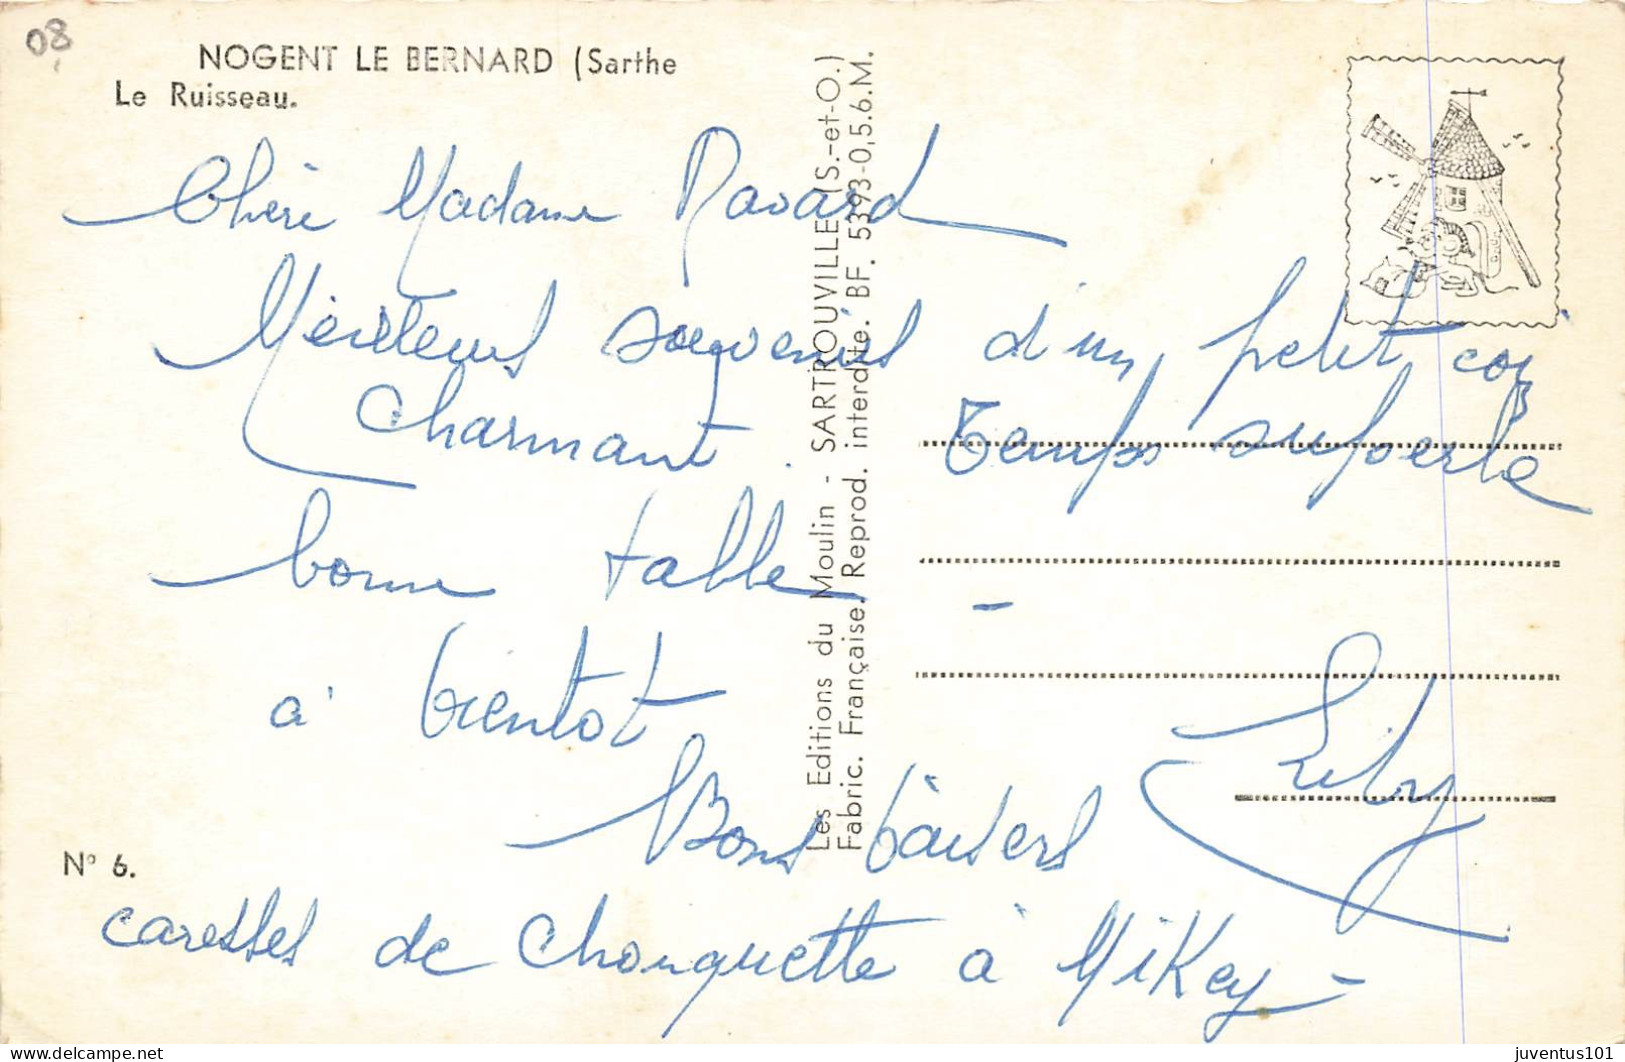 08
NOGENT LE BERNARD (Sarthe
Le Ruisseau.
Chère Madame Ravard
Meilleurs souvenirs d'un petit coin
charmant. Temps superbe
bonne table -
à bientot
Bons baisers Lily
caresses de Chouquette à Mikey -
N° 6.
Les Editions du Moulin - SARTROUVILLE (S.-et-O.)
Fabric. Française. Reprod. interdite. BF. 5393-0,5.6.M.
www.delcampe.net
juventus101